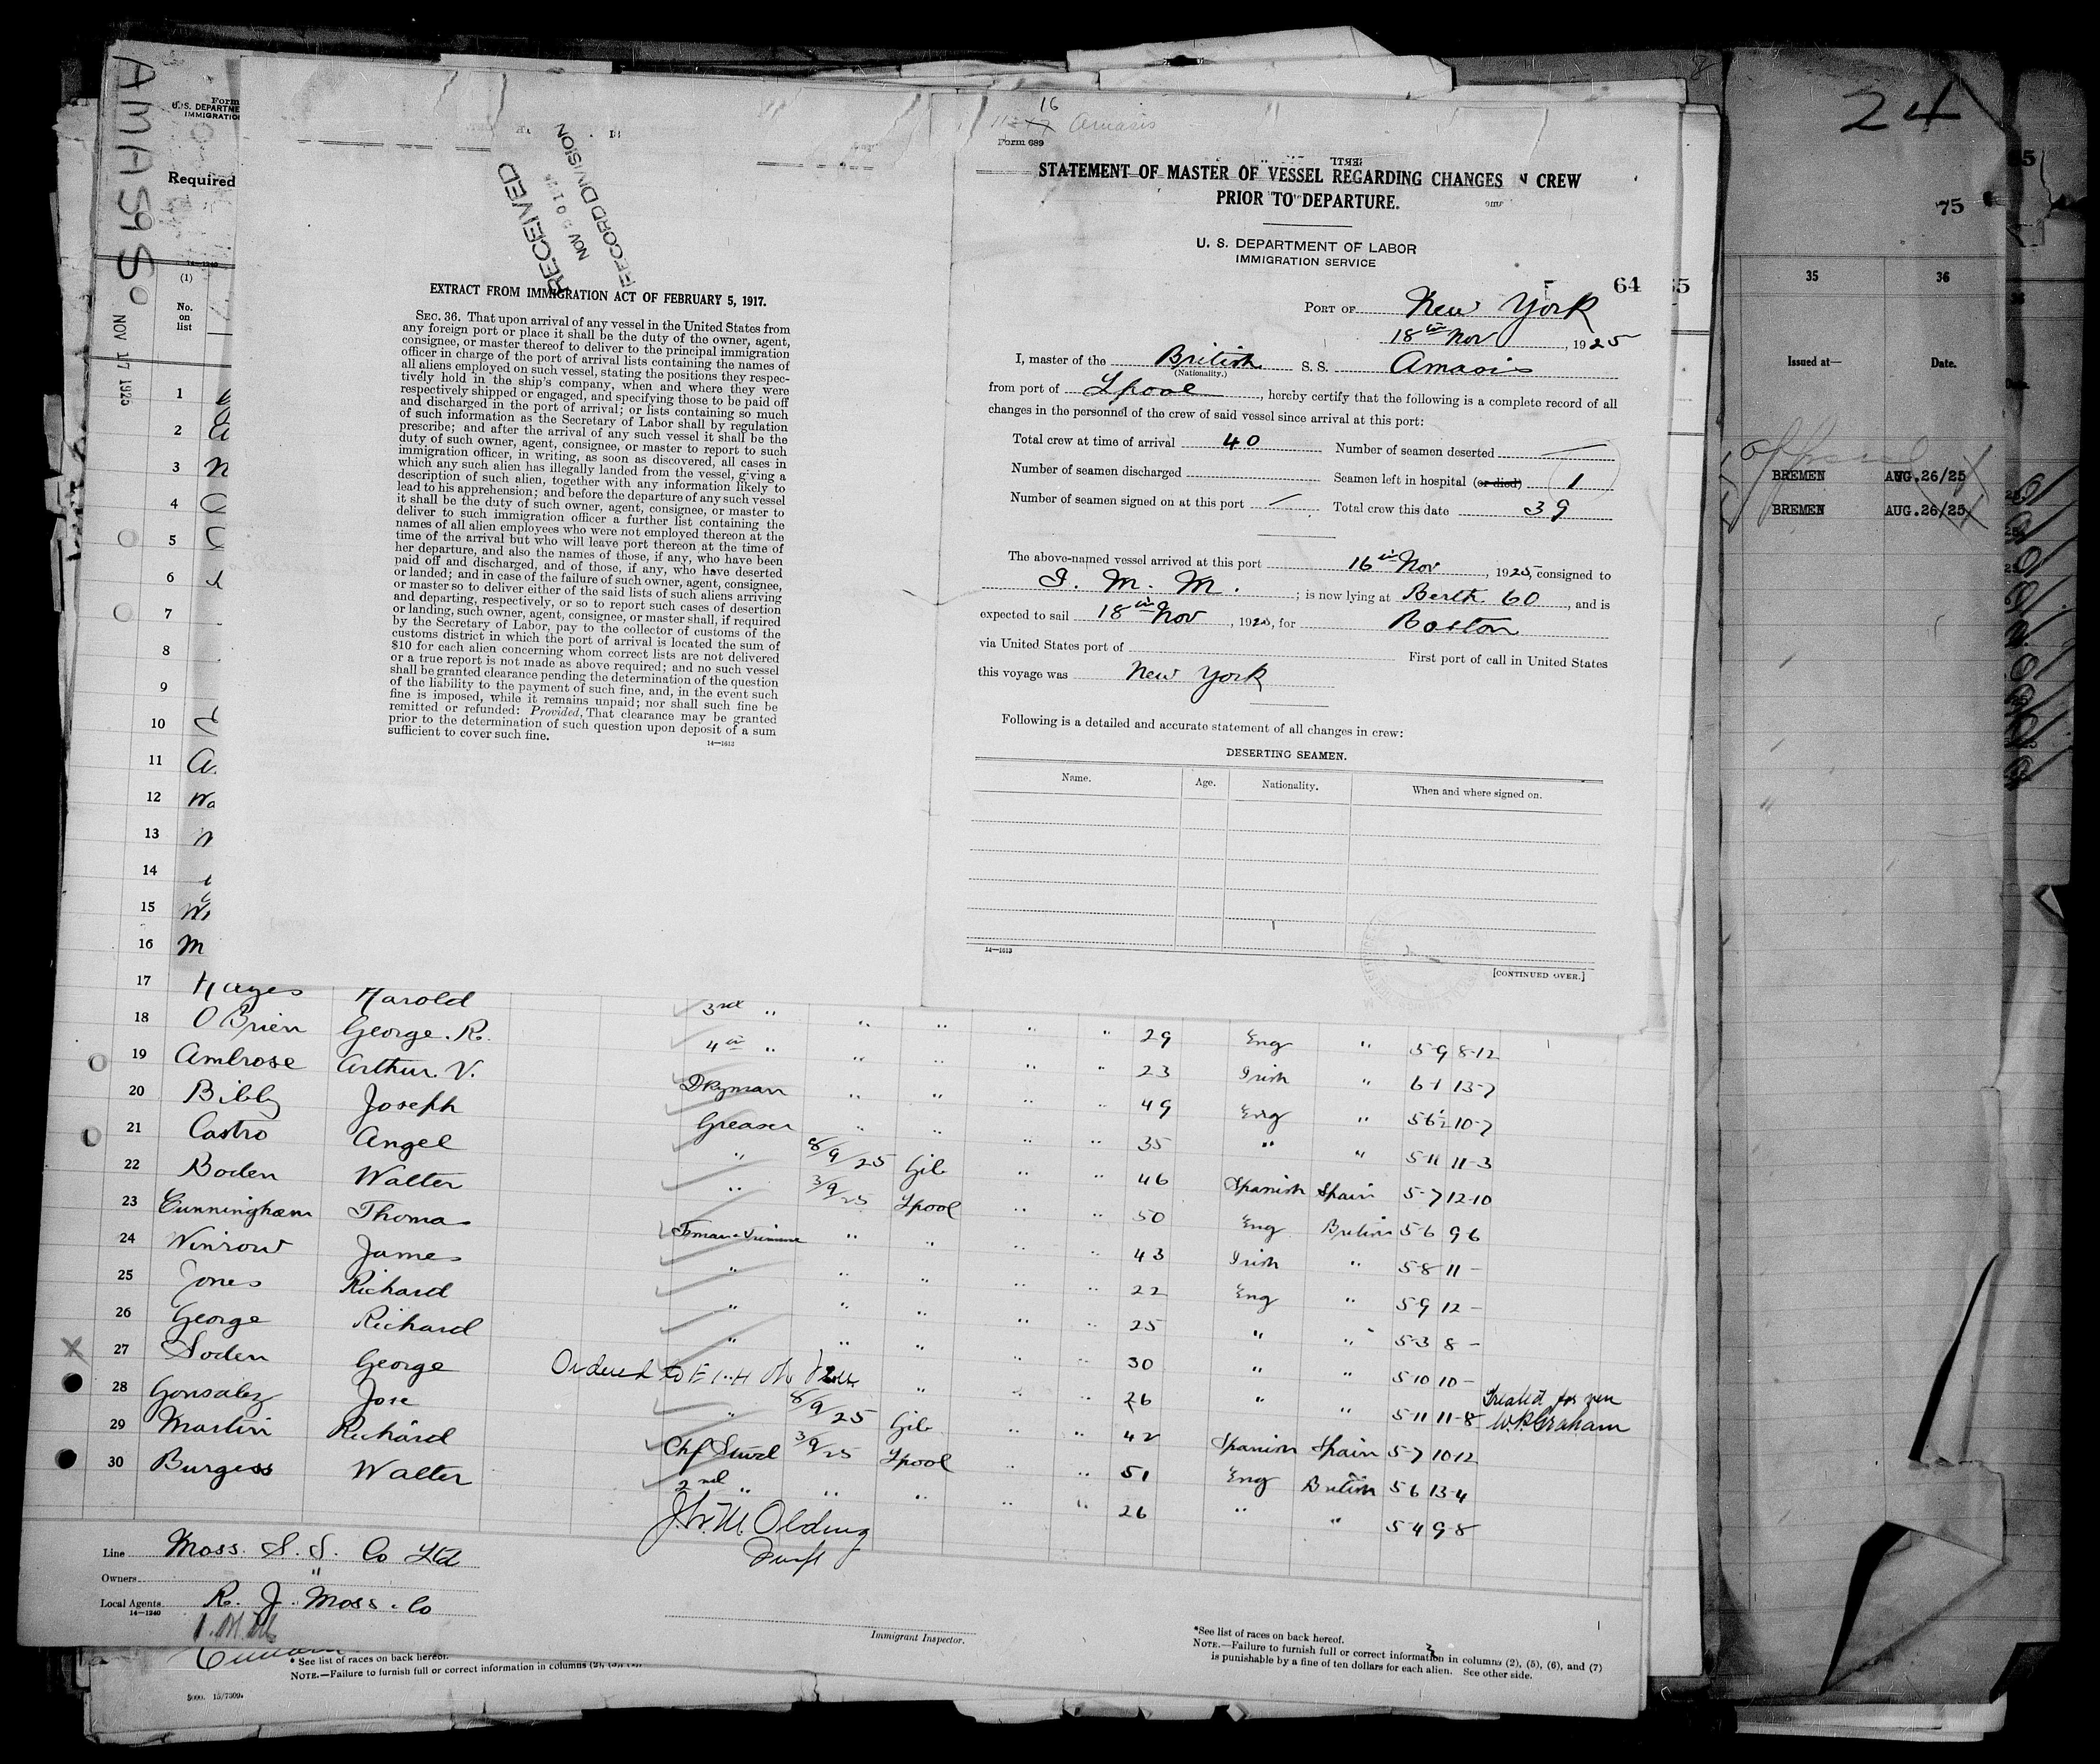 AMASIS
NOV 17 1925
Form
U. S. DEPARTME
IMMIGRATIO
Required
14—1240
(1)
No.
on
list
RECEIVED
NOV
RECORD DIVISION
EXTRACT FROM IMMIGRATION ACT OF FEBRUARY 5, 1917.
SEC. 36. That upon arrival of any vessel in the United States from
any foreign port or place it shall be the duty of the owner, agent,
consignee, or master thereof to deliver to the principal immigration
officer in charge of the port of arrival lists containing the names of
all aliens employed on such vessel, stating the positions they respec-
tively hold in the ship's company, when and where they were
respectively shipped or engaged, and specifying those to be paid off
and discharged in the port of arrival; or lists containing so much
of such information as the Secretary of Labor shall by regulation
prescribe; and after the arrival of any such vessel it shall be the
duty of such owner, agent, consignee, or master to report to such
immigration officer, in writing, as soon as discovered, all cases in
which any such alien has illegally landed from the vessel, giving a
description of such alien, together with any information likely to
lead to his apprehension; and before the departure of any such vessel
it shall be the duty of such owner, agent, consignee, or master to
deliver to such immigration officer a further list containing the
names of all alien employees who were not employed thereon at the
time of the arrival but who will leave port thereon at the time of
her departure, and also the names of those, if any, who have been
paid off and discharged, and of those, if any, who have deserted
or landed; and in case of the failure of such owner, agent, consignee,
or master so to deliver either of the said lists of such aliens arriving
and departing, respectively, or so to report such cases of desertion
or landing, such owner, agent, consignee, or master shall, if required
by the Secretary of Labor, pay to the collector of customs of the
customs district in which the port of arrival is located the sum of
$10 for each alien concerning whom correct lists are not delivered
or a true report is not made as above required; and no such vessel
shall be granted clearance pending the determination of the question
of the liability to the payment of such fine, and, in the event such
fine is imposed, while it remains unpaid; nor shall such fine be
remitted or refunded: Provided, That clearance may be granted
prior to the determination of such question upon deposit of a sum
sufficient to cover such fine.
14—1613
16
Amasis
Form 689
STATEMENT OF MASTER OF VESSEL REGARDING CHANGES IN CREW
PRIOR TO DEPARTURE.
U. S. DEPARTMENT OF LABOR
IMMIGRATION SERVICE
64
PORT OF New York
18th Nov, 1925
I, master of the British S. S. Amasis
(Nationality.)
from port of Lpool, hereby certify that the following is a complete record of all
changes in the personnel of the crew of said vessel since arrival at this port:
Total crew at time of arrival 40 Number of seamen deserted —
Number of seamen discharged Seamen left in hospital (or died) 1
Number of seamen signed on at this port — Total crew this date 39
The above-named vessel arrived at this port 16th Nov, 1925, consigned to
I. M. M.; is now lying at Berth 60, and is
expected to sail 18th Nov, 1925, for Boston
via United States port of First port of call in United States
this voyage was New York
Following is a detailed and accurate statement of all changes in crew:
DESERTING SEAMEN.
Name. Age. Nationality. When and where signed on.
14—1613
[CONTINUED OVER.]
24
75
35 36
Issued at— Date.
BREMEN AUG.26/25
BREMEN AUG.26/25
1
2
3
4
5
6
7
8
9
10
11
12
13
14
15
16
17 Hayes Harold 3rd " " " " " 29 Eng " 5-9 8-12
18 O'Brien George. R. 4th " " " " " 23 Irish " 6-1 13-7
19 Ambrose Arthur. V. Dkyman " " " " 49 Eng " 5-6½ 10-7
20 Bibby Joseph Greaser " " " " 35 " " 5-11 11-3
21 Castro Angel " 8/9/25 Gib " " 46 Spanish Spain 5-7 12-10
22 Boden Walter " 3/9/25 Lpool " " 50 Eng British 5-6 9-6
23 Cunningham Thomas " " " " 43 Irish " 5-8 11 -
24 Winrow James " " " " " 22 Eng " 5-9 12 -
25 Jones Richard " " " " " 25 " " 5-3 8 -
26 George Richard " " " " " 30 " " 5-10 10 -
27 Soden George Ordered to " " " 26 " " 5-11 11-8 Treated for ven
W.P. Graham
28 Gonsalez Jose " 8/9/25 Gib " " 42 Spanish Spain 5-7 10-12
29 Martin Richard Chf Stwd 3/9/25 Lpool " " 51 Eng British 5-6 13-4
30 Burgess Walter 2nd " " " " " 26 " " 5-4 9-8
Line Moss. S. S. Co Ltd
Owners "
Local Agents R. J. Moss. Co
14—1240
Olding
Immigrant Inspector.
*See list of races on back hereof.
NOTE.—Failure to furnish full or correct information in columns (2), (5), (6), and (7)
is punishable by a fine of ten dollars for each alien. See other side.
* See list of races on back hereof.
NOTE.—Failure to furnish full or correct information in columns (2),